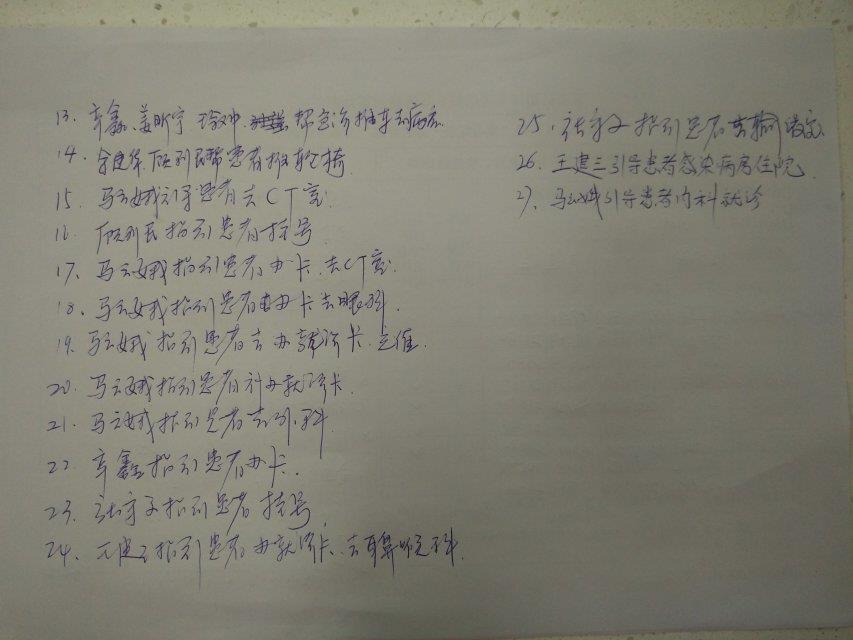 13、辛鑫、姜昕宇 帮急诊推车去病房
14、帮患者推轮椅
15、马云娥引导患者去CT室
16、顾列民指引患者挂号
17、马云娥指引患者办卡、去CT室
18、马云娥指引患者办卡去眼科
19、马云娥指引患者去办就诊卡、
20、马云娥指引患者办就诊卡
21、马云娥指引患者去外科
22、辛鑫指引患者办卡、
23、张守子指引患者挂号
24、指引患者办就诊卡、去耳鼻喉科
25、张守子指引患者去
26、王建三引导患者感染病房住院
27、马云娥引导患者内科就诊